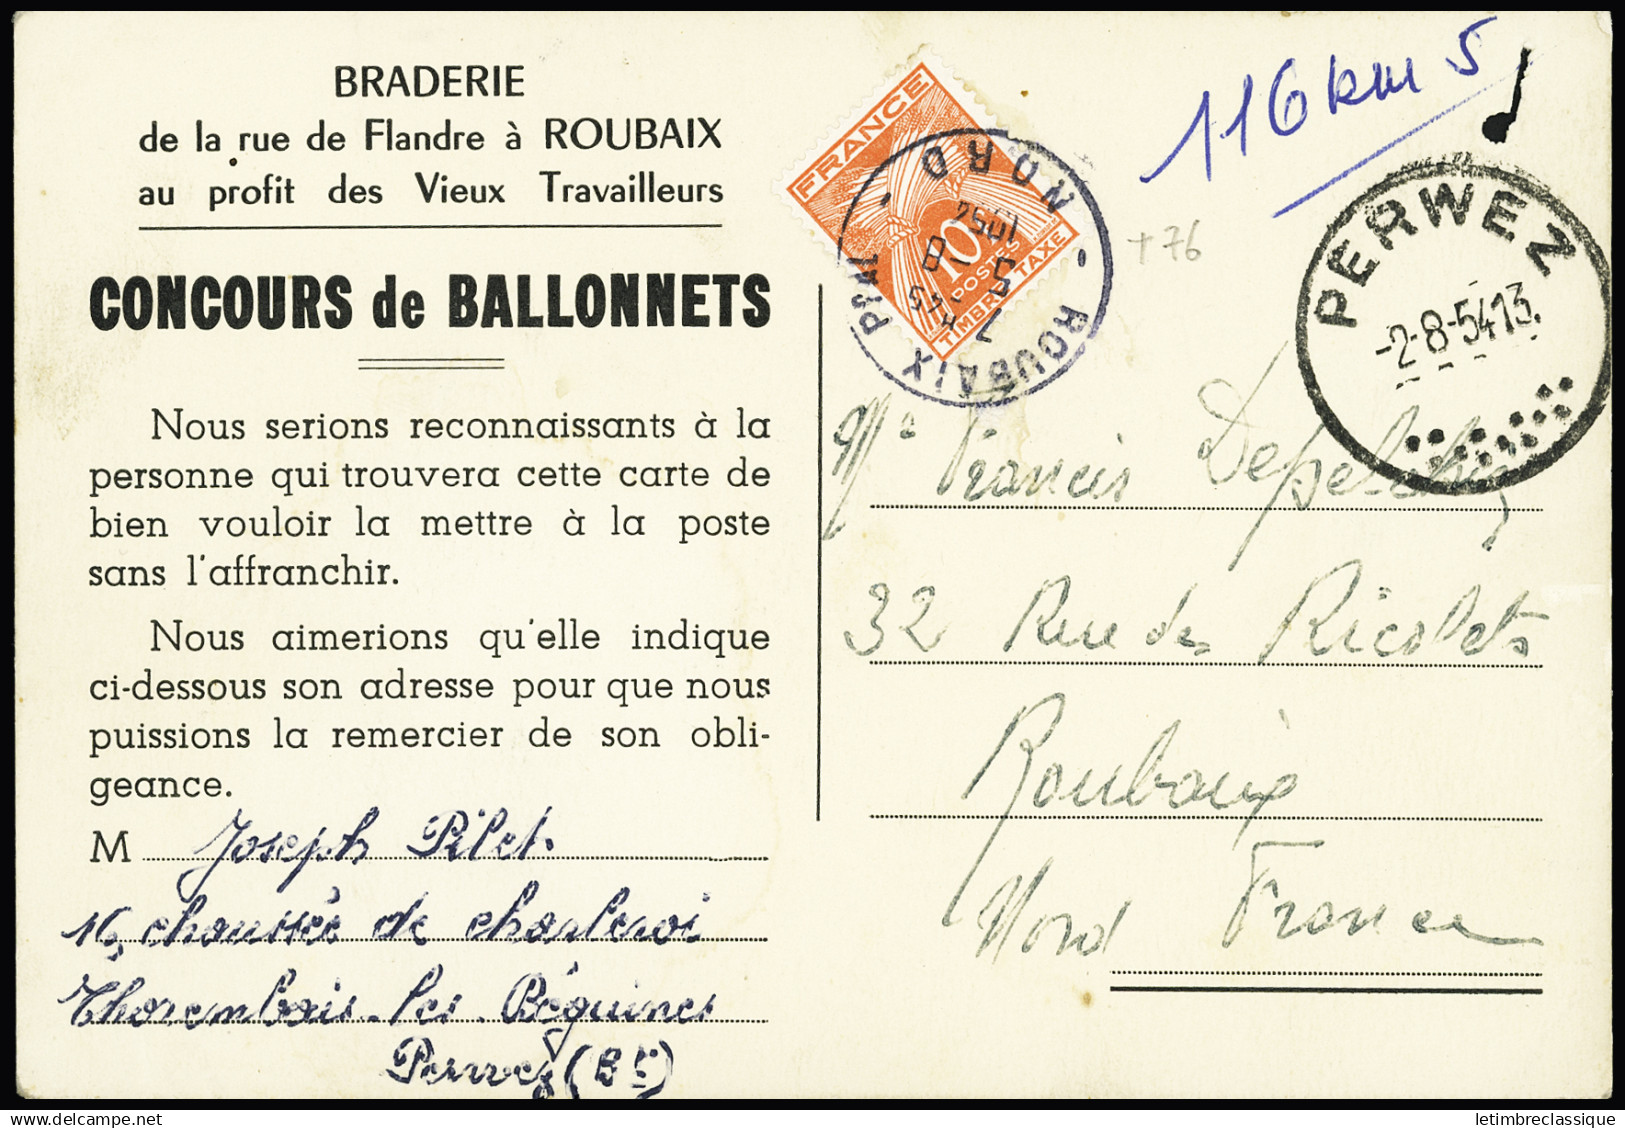 BRADERIE
de la rue de Flandre à ROUBAIX
au profit des Vieux Travailleurs
CONCOURS de BALLONNETS
Nous serions reconnaissants à la
personne qui trouvera cette carte de
bien vouloir la mettre à la poste
sans l'affranchir.
Nous aimerions qu'elle indique
ci-dessous son adresse pour que nous
puissions la remercier de son obli-
geance.
M Joseph Pilet.
16, chaussée de charleroi
Thorembais-les-Béguines
Perwez (Bt)
FRANCE
10
POSTES
TIMBRE TAXE
ROUBAIX PPAL
NORD
7 H45
5 - 8
1954
116 km 5
+ 76
PERWEZ
-2-8-5413.
Francis
32 Rue des Ricolets
Roubaix
Nord France
letimbreclassique